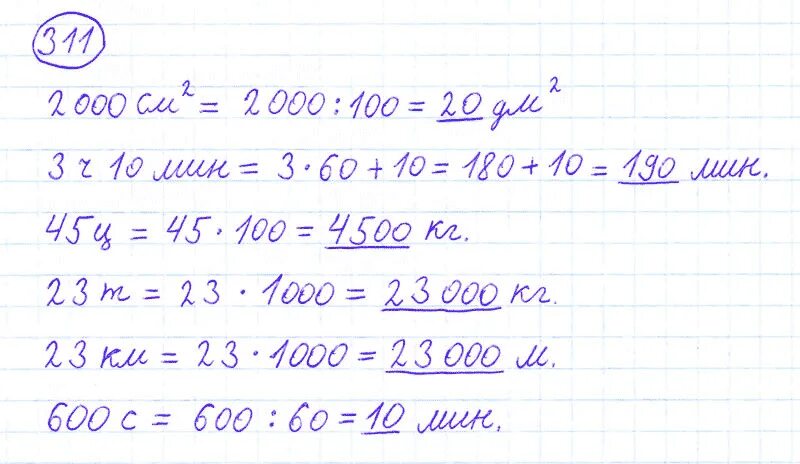 311
2000 см² = 2000 : 100 = 20 дм²
3 ч 10 мин = 3 · 60 + 10 = 180 + 10 = 190 мин.
45 ц = 45 · 100 = 4500 кг.
23 т = 23 · 1000 = 23 000 кг.
23 км = 23 · 1000 = 23 000 м.
600 с = 600 : 60 = 10 мин.